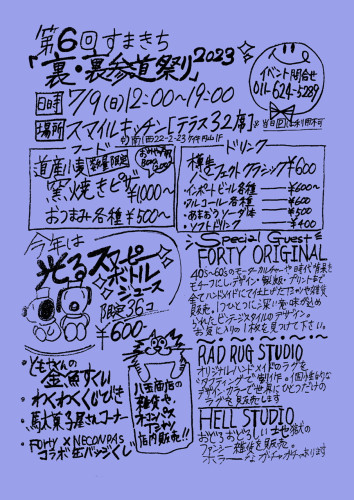 第6回 すまきち
「裏・裏参道祭り」2023
イベント問合せ
011-624-5289
日時 7/9(日)12:00〜19:00
場所 スマイルキッチン「テラス32席」
南1西22-2-23 1F
フード
道産小麦 数量限定
窯焼きピザ ¥1000〜
おつまみ各種 ¥500〜
ドリンク
樽生
パーフェクトクラシック ¥600
・インポートビール各種 ¥600〜
・アルコール各種 ¥600
・あまおうソーダ ¥500
・ソフトドリンク ¥400
今年は
光るスヌーピー
ボトル
ジュース
限定36コ
¥600-
Special Guest
FORTY ORIGINAL
40s〜60sのモーターカルチャーや時代背景を
モチーフにしデザイン・製版・プリントまで
全てハンドメイドにて仕上げたTシャツや雑貨を
販売。1つひとつに深い意味が込め
られたビンテージスタイルのデザイン。
お気に入りの1枚を見つけて下さい。
RAD RUG STUDIO
オリジナルハンドメイドのラグを
「タフティング」で制作。個性的な
デザイン、カラーで世界にひとつだけの
ラグを販売します
HELL STUDIO
おどろおどろしい地獄の
ファンシー雑貨を販売。
ホラーなガチャガチャあります
・ともさんの
金魚すくい
・わくわくくじびき
・駄菓子屋さんコーナー
・FORTY × NECONPAS
コラボ缶バッジくじ
八百商店の
雑貨や
ネコンパス
Tシャツ
店内販売!!